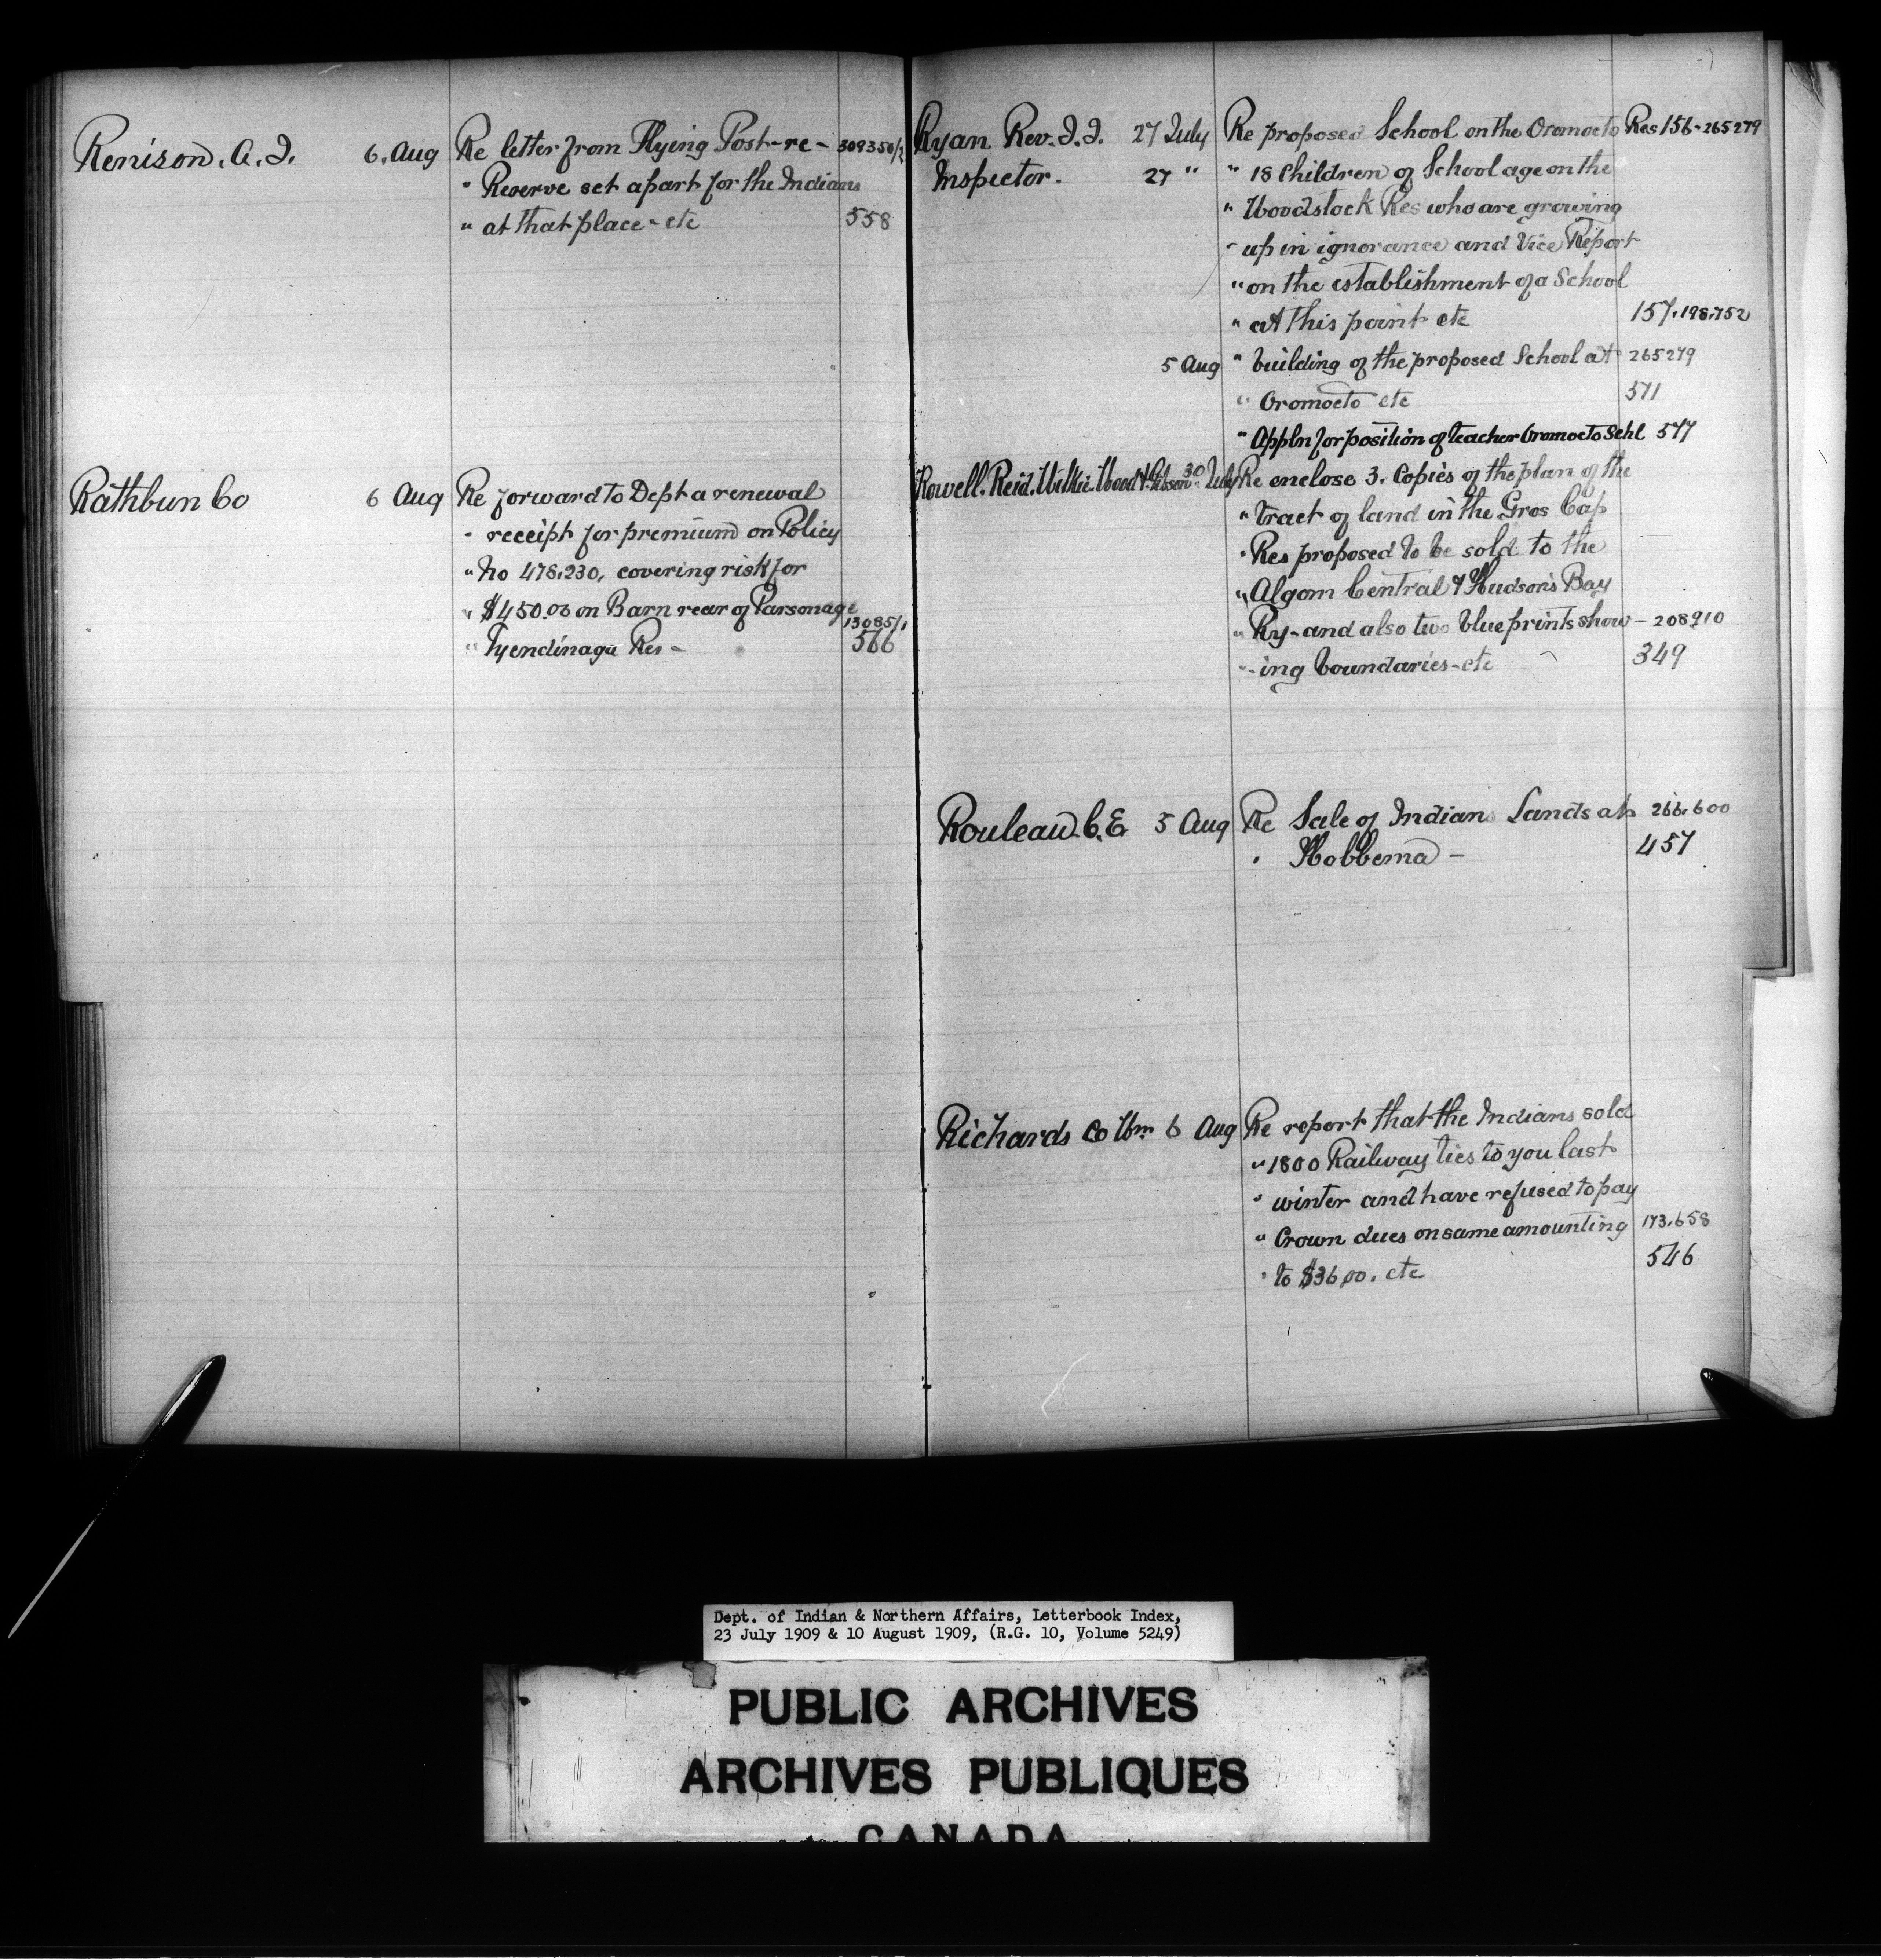 Renison. A. I. 6. Aug Re letter from Flying Post-re- 309350/2
" Reserve set apart for the Indians
" at that place - etc 558
Rathbun Co 6 Aug Re forward to Dept a renewal
" receipt for premium on Policy
" No 478.230, covering risk for
" $450.00 on Barn rear of Parsonage
" Tyendinaga Res - 13085/1
566
Ryan Rev. F. F. 27 July Re proposed School on the Oromocto Res 156-265279
Inspector. 27 " " 18 Children of School age on the
" Woodstock Res who are growing
" up in ignorance and Vice Report
" on the establishment of a School
" at this point etc 157.198.752
5 Aug " building of the proposed School at 265279
" Oromocto etc 571
" Appln for position of teacher Oromocto Schl 577
Rowell. Reid. Wilkie. Wood & Gibson 30 July Re enclose 3. Copies of the plan of the
" tract of land in the Gros Cap
" Res proposed to be sold to the
" Algom Central & Hudson's Bay
" Ry - and also two blue prints show - 208910
" -ing boundaries - etc 349
Rouleau C. E 5 Aug Re Sale of Indian Lands at 266.600
" Hobbema - 457
Richards Co Wm 6 Aug Re report that the Indians sold
" 1800 Railway ties to you last
" winter and have refused to pay
" Crown dues on same amounting 173.658
" to $36.00. etc 546
Dept. of Indian & Northern Affairs, Letterbook Index,
23 July 1909 & 10 August 1909, (R.G. 10, Volume 5249)
PUBLIC ARCHIVES
ARCHIVES PUBLIQUES
CANADA